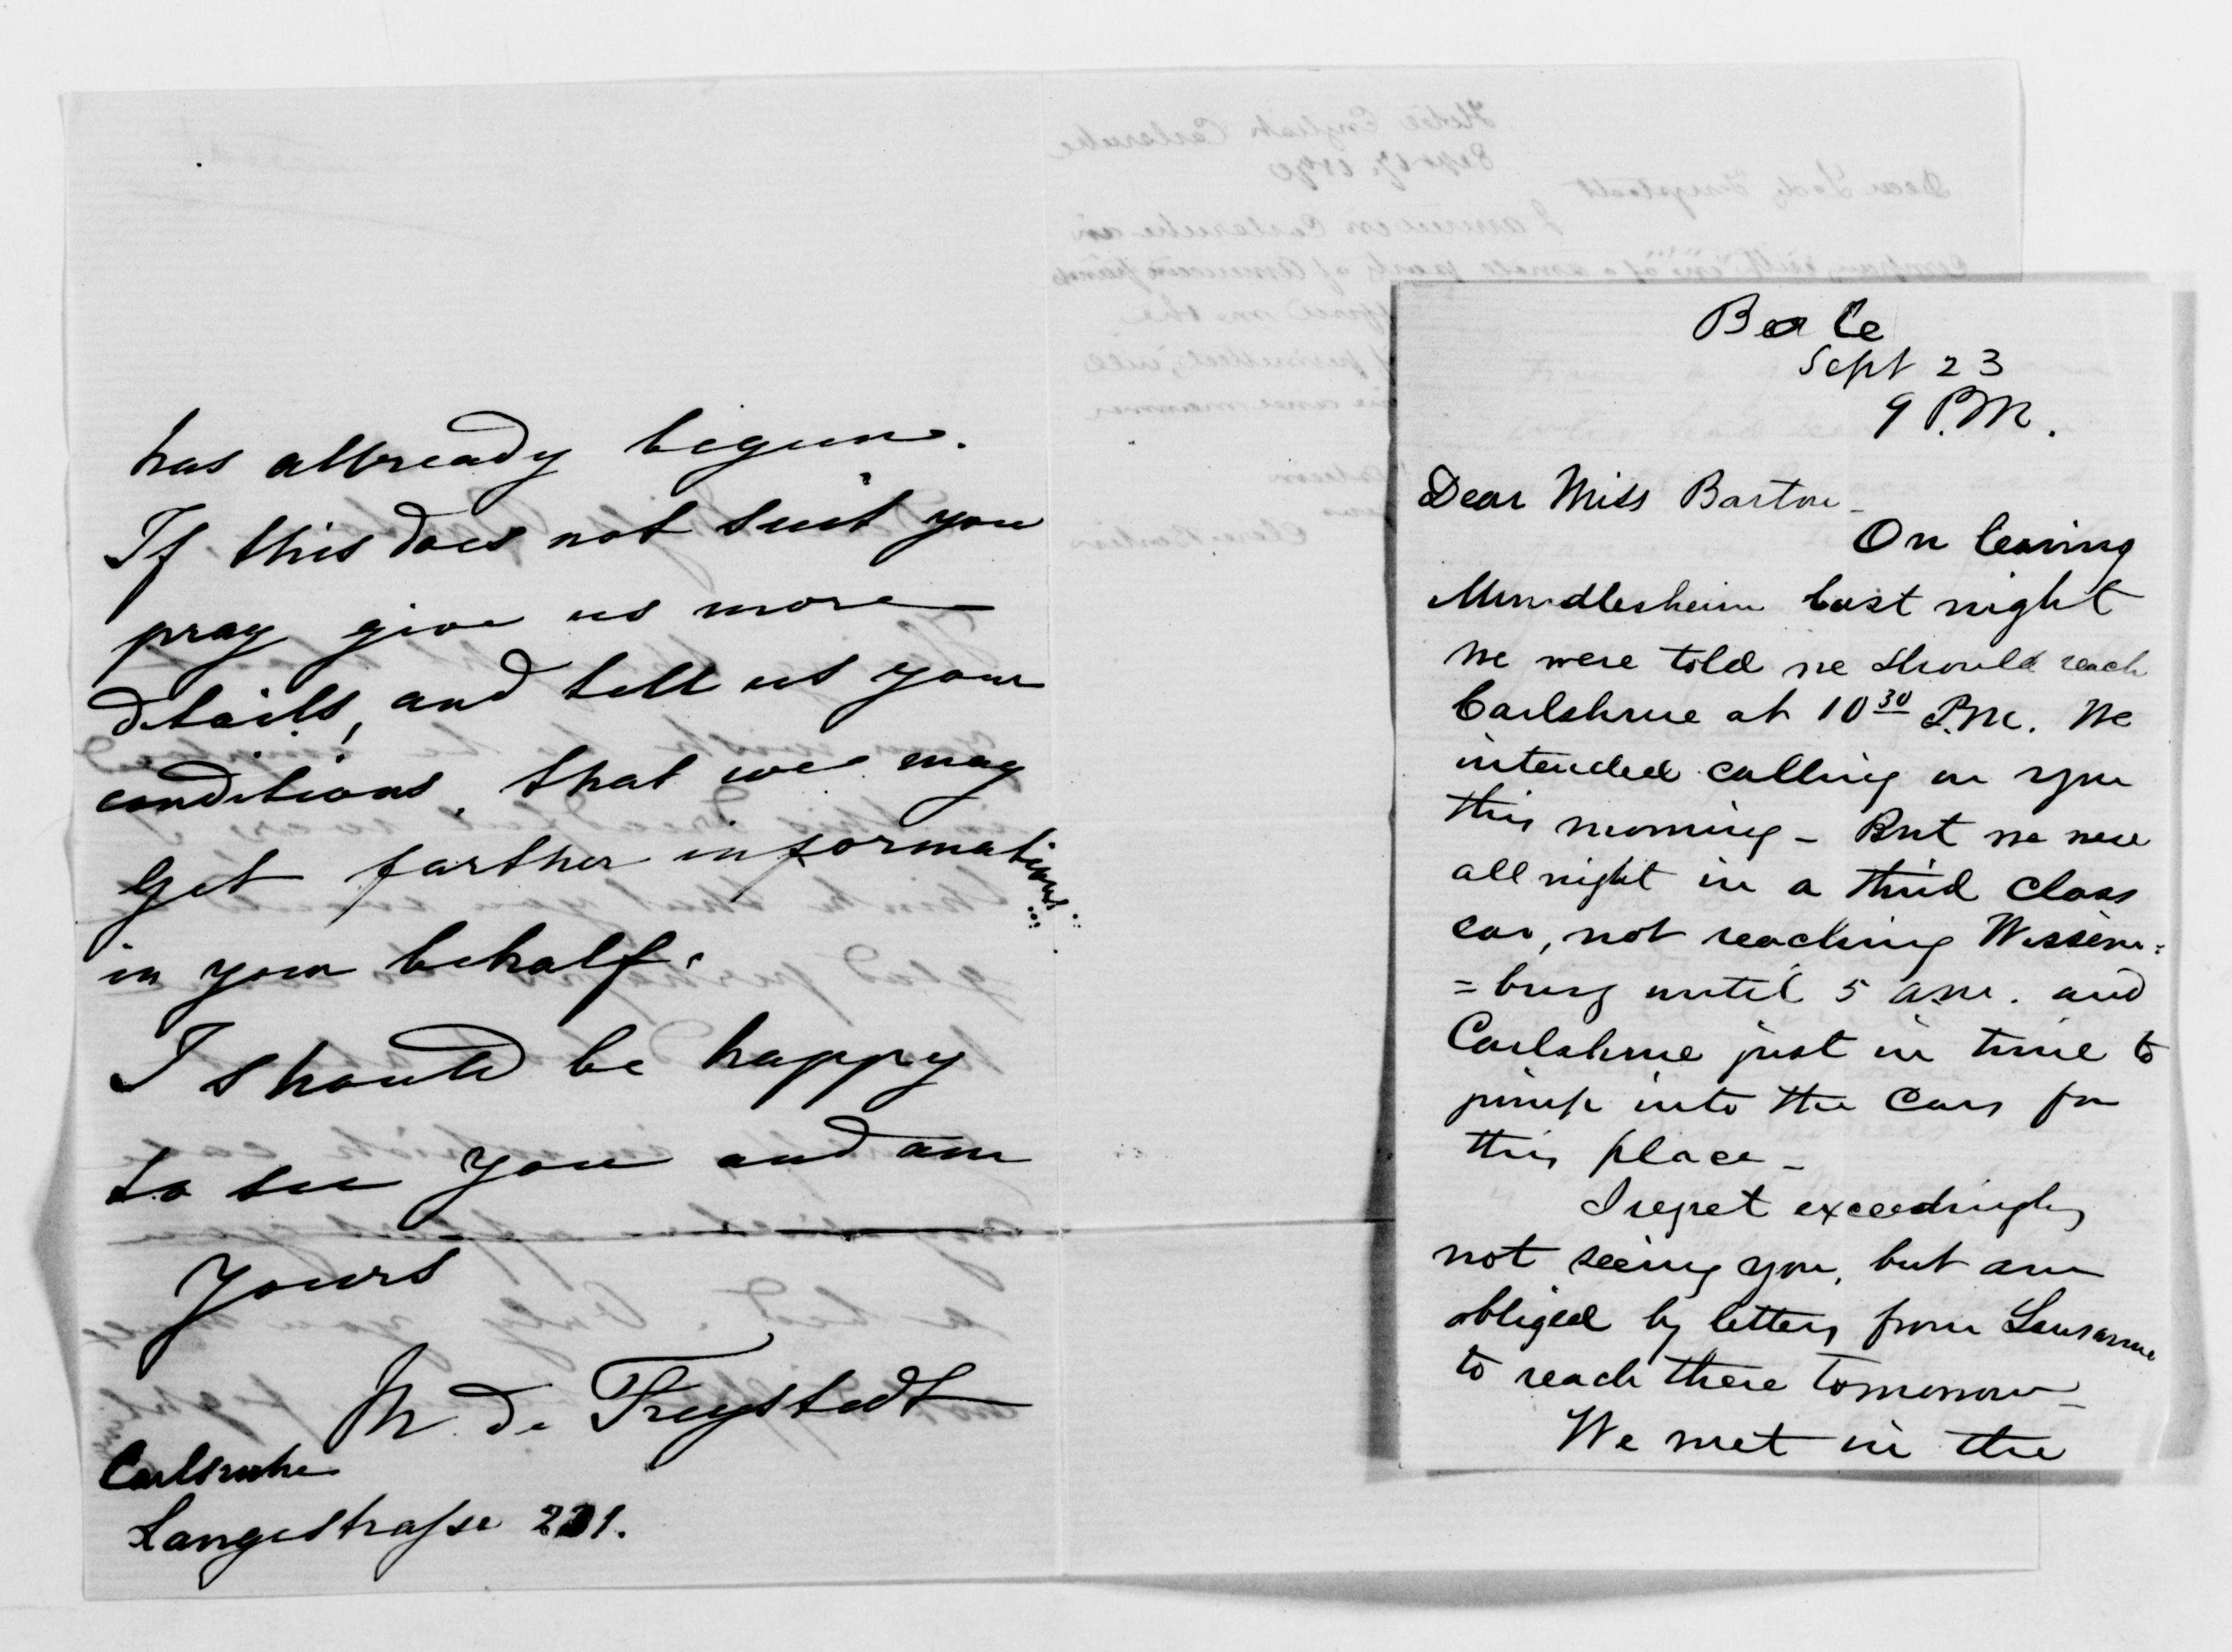 has allready begun.
If this does not suit you
pray give us more
details, and tell us your
conditions, that we may
get farther informations
in your behalf.
I should be happy
to see you and am
Yours
M. de Freystedt
Carlsruhe
Langestraße 231.
Bale
Sept 23
9 P.M.
Dear Miss Barton_
On leaving
last night
we were told we should reach
Carlshrue at 10 30 P.M. We
intended calling on you
this morning – But we were
all night in a third class
car, not reaching Wissem=
=burg until 5 a.m. and
Carlshrue just in time to
jump into the cars for
this place –
I regret exceedingly
not seeing you, but am
obliged by letters from Lausanne
to reach there tomorrow –
We met in the